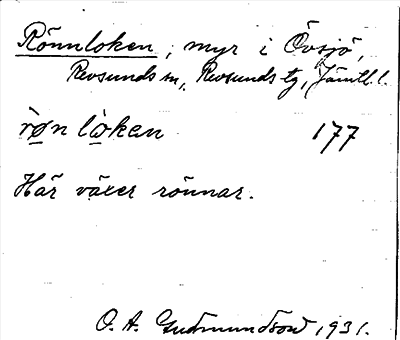 Rönnloken, myr i Övsjö,
Revsunds sn, Revsunds tg, Jämtl. l.
rø̀n lò̱ken 177
Här växer rönnar.
O. A. Gudmundsson 1931.